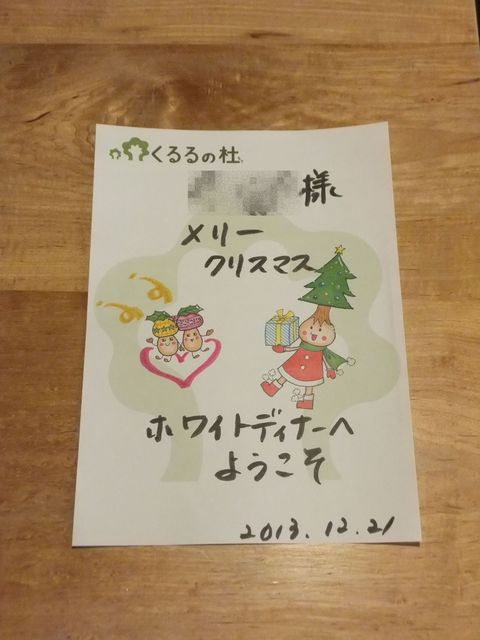 くるるの杜
様
メリー
クリスマス
ホワイトディナーへ
ようこそ
2013.12.21